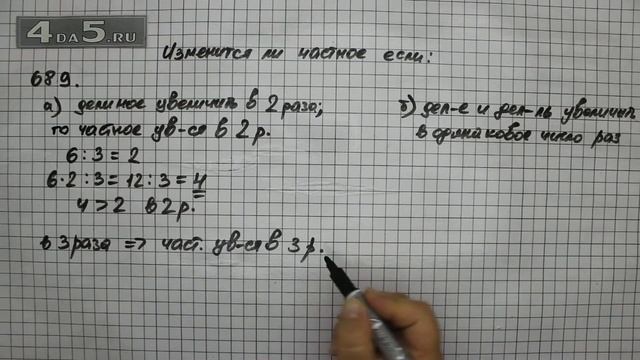 4DA5.RU
Изменится ли частное если:
689.
а) делимое увеличить в 2 раза;
то частное ув-ся в 2 р.
6 : 3 = 2
6·2 : 3 = 12 : 3 = 4
4 > 2 в 2 р.
в 3 раза => част. ув-ся в 3 р.
б) дел-е и дел-ль увеличить
в одинаковое число раз